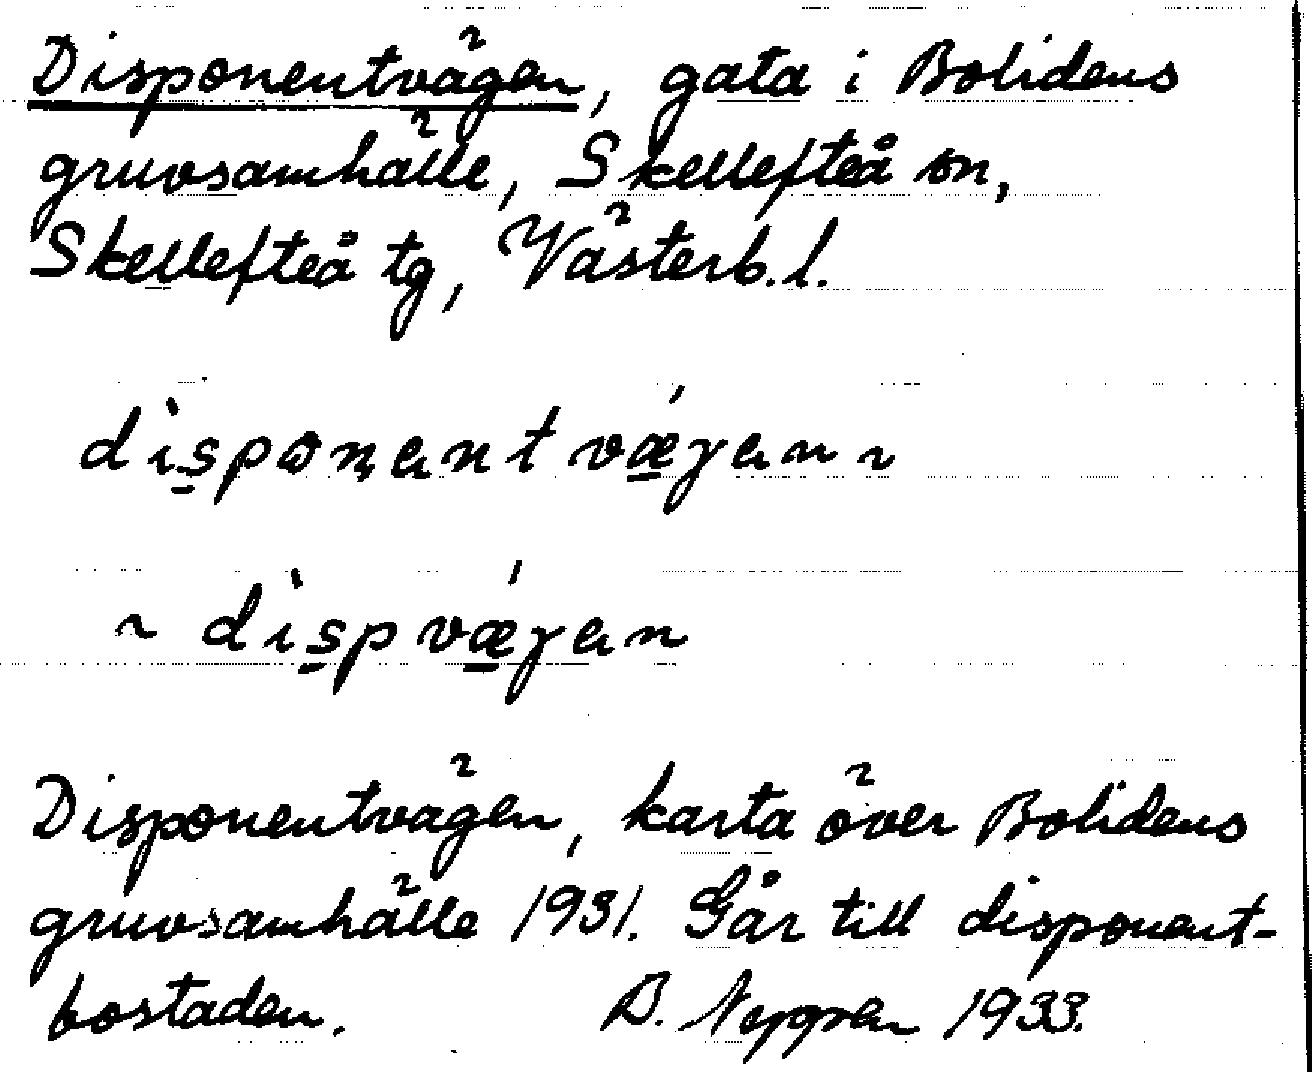 Disponentvägen, gata i Bolidens
gruvsamhälle, Skellefteå sn,
Skellefteå tg, Västerb. l.
dìsponantvǽɣan ~
~ dìspvǽɣan
Disponentvägen, karta över Bolidens
gruvsamhälle 1931. Går till disponent-
bostaden. B. 1933.